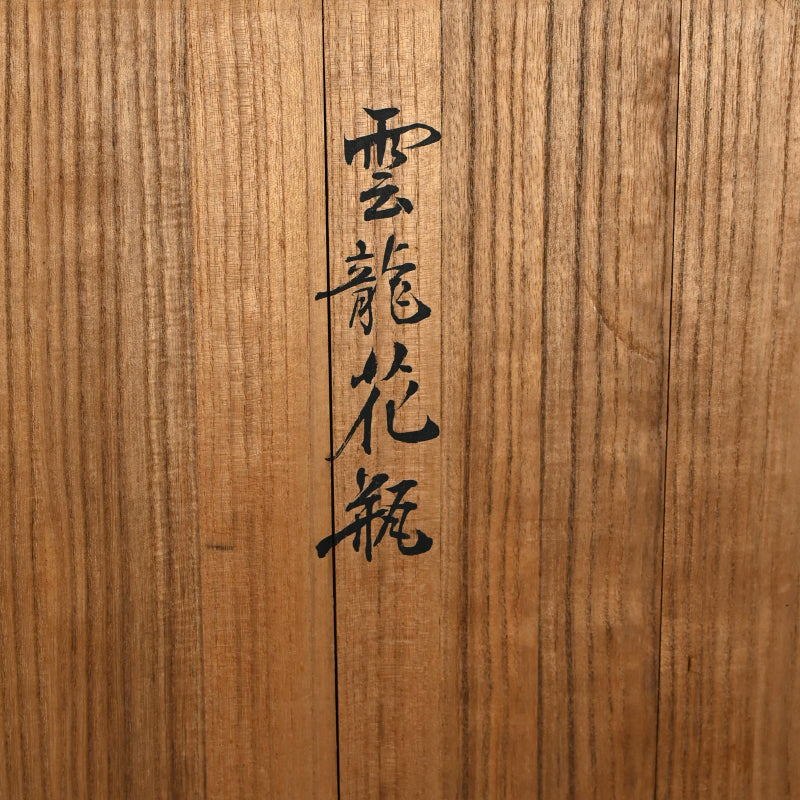 雲龍花瓶